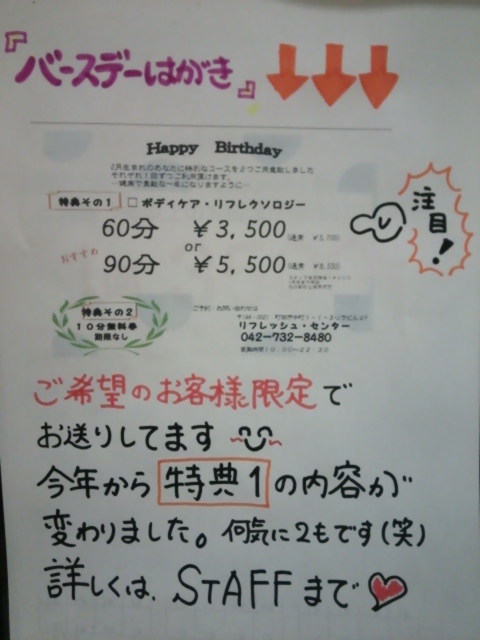 『バースデーはがき』
Happy Birthday
2月生まれのあなたに特別なコースを2つご用意致しました
それぞれ1回ずつご利用頂けます。
…健康で素敵な一年になりますように…
特典その1 □ ボディケア・リフレクソロジー
60分 ¥3,500
or
おすすめ 90分 ¥5,500
注目!
特典その2
10分無料券
期限なし
ご予約・お問い合わせは
リフレッシュ・センター
042-732-8480
営業時間10:00〜22:30
ご希望のお客様限定で
お送りしてます
今年から特典1の内容が
変わりました。何気に2もです(笑)
詳しくは、STAFFまで